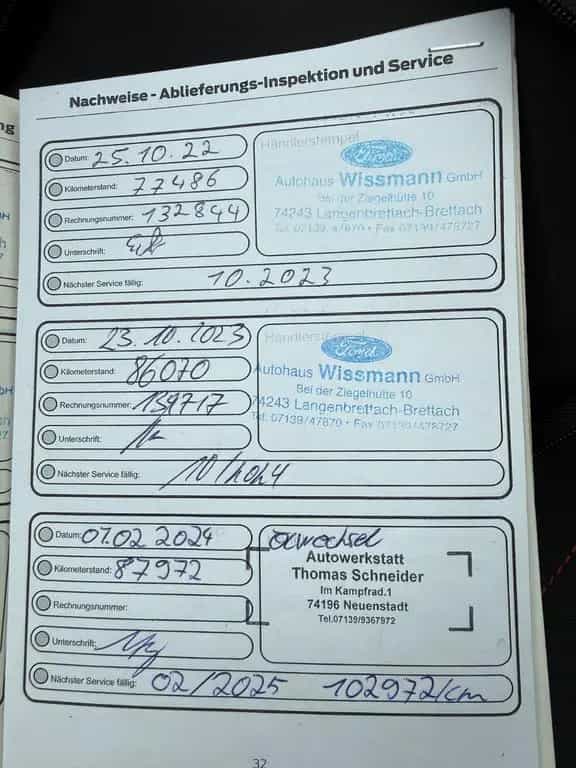 ng
Nachweise - Ablieferungs-Inspektion und Service
Datum: 25.10.22
Kilometerstand: 77486
Rechnungsnummer: 132844
Unterschrift:
Nächster Service fällig: 10.2023
Händlerstempel
Ford
Autohaus Wissmann GmbH
Bei der Ziegelhütte 10
74243 Langenbrettach-Brettach
Fax 07139/478727
Datum: 23.10.2023
Kilometerstand: 86070
Rechnungsnummer: 139717
Unterschrift:
Nächster Service fällig: 10/2024
Ford
Autohaus Wissmann GmbH
Bei der Ziegelhütte 10
74243 Langenbrettach-Brettach
Tel. 07139/47870 • Fax 07139/478727
Datum: 07.02 2024
Kilometerstand: 87972
Rechnungsnummer:
Unterschrift:
Nächster Service fällig: 02/2025 102972/km
Ölwechsel
Autowerkstatt
Thomas Schneider
Im Kampfrad.1
74196 Neuenstadt
Tel.07139/9367972
32